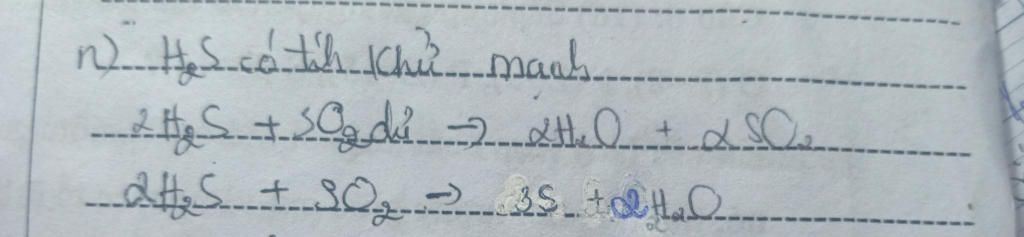 n) H₂S có tính khử mạnh
2H₂S + 3O₂ dư → 2H₂O + 2SO₂
2H₂S + SO₂ → 3S + 2H₂O